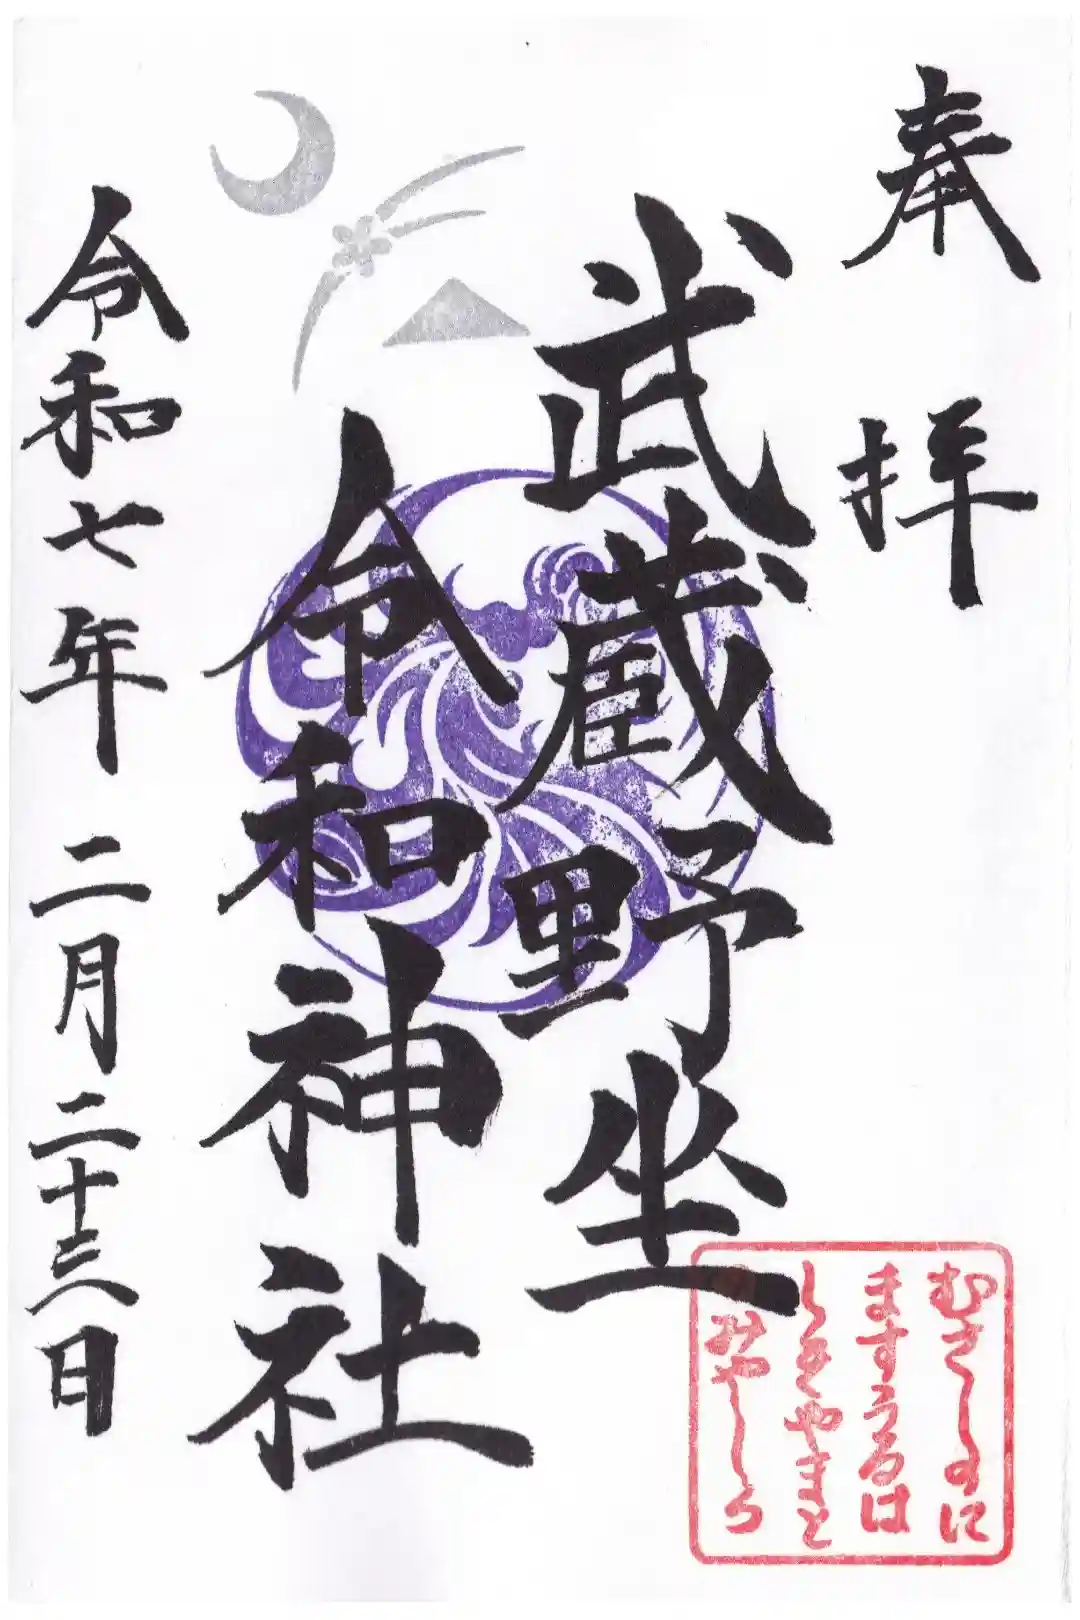 奉拝
武蔵野坐
令和神社
令和七年二月二十三日
むさしのに
ますうるは
しきやまと
みやしろ